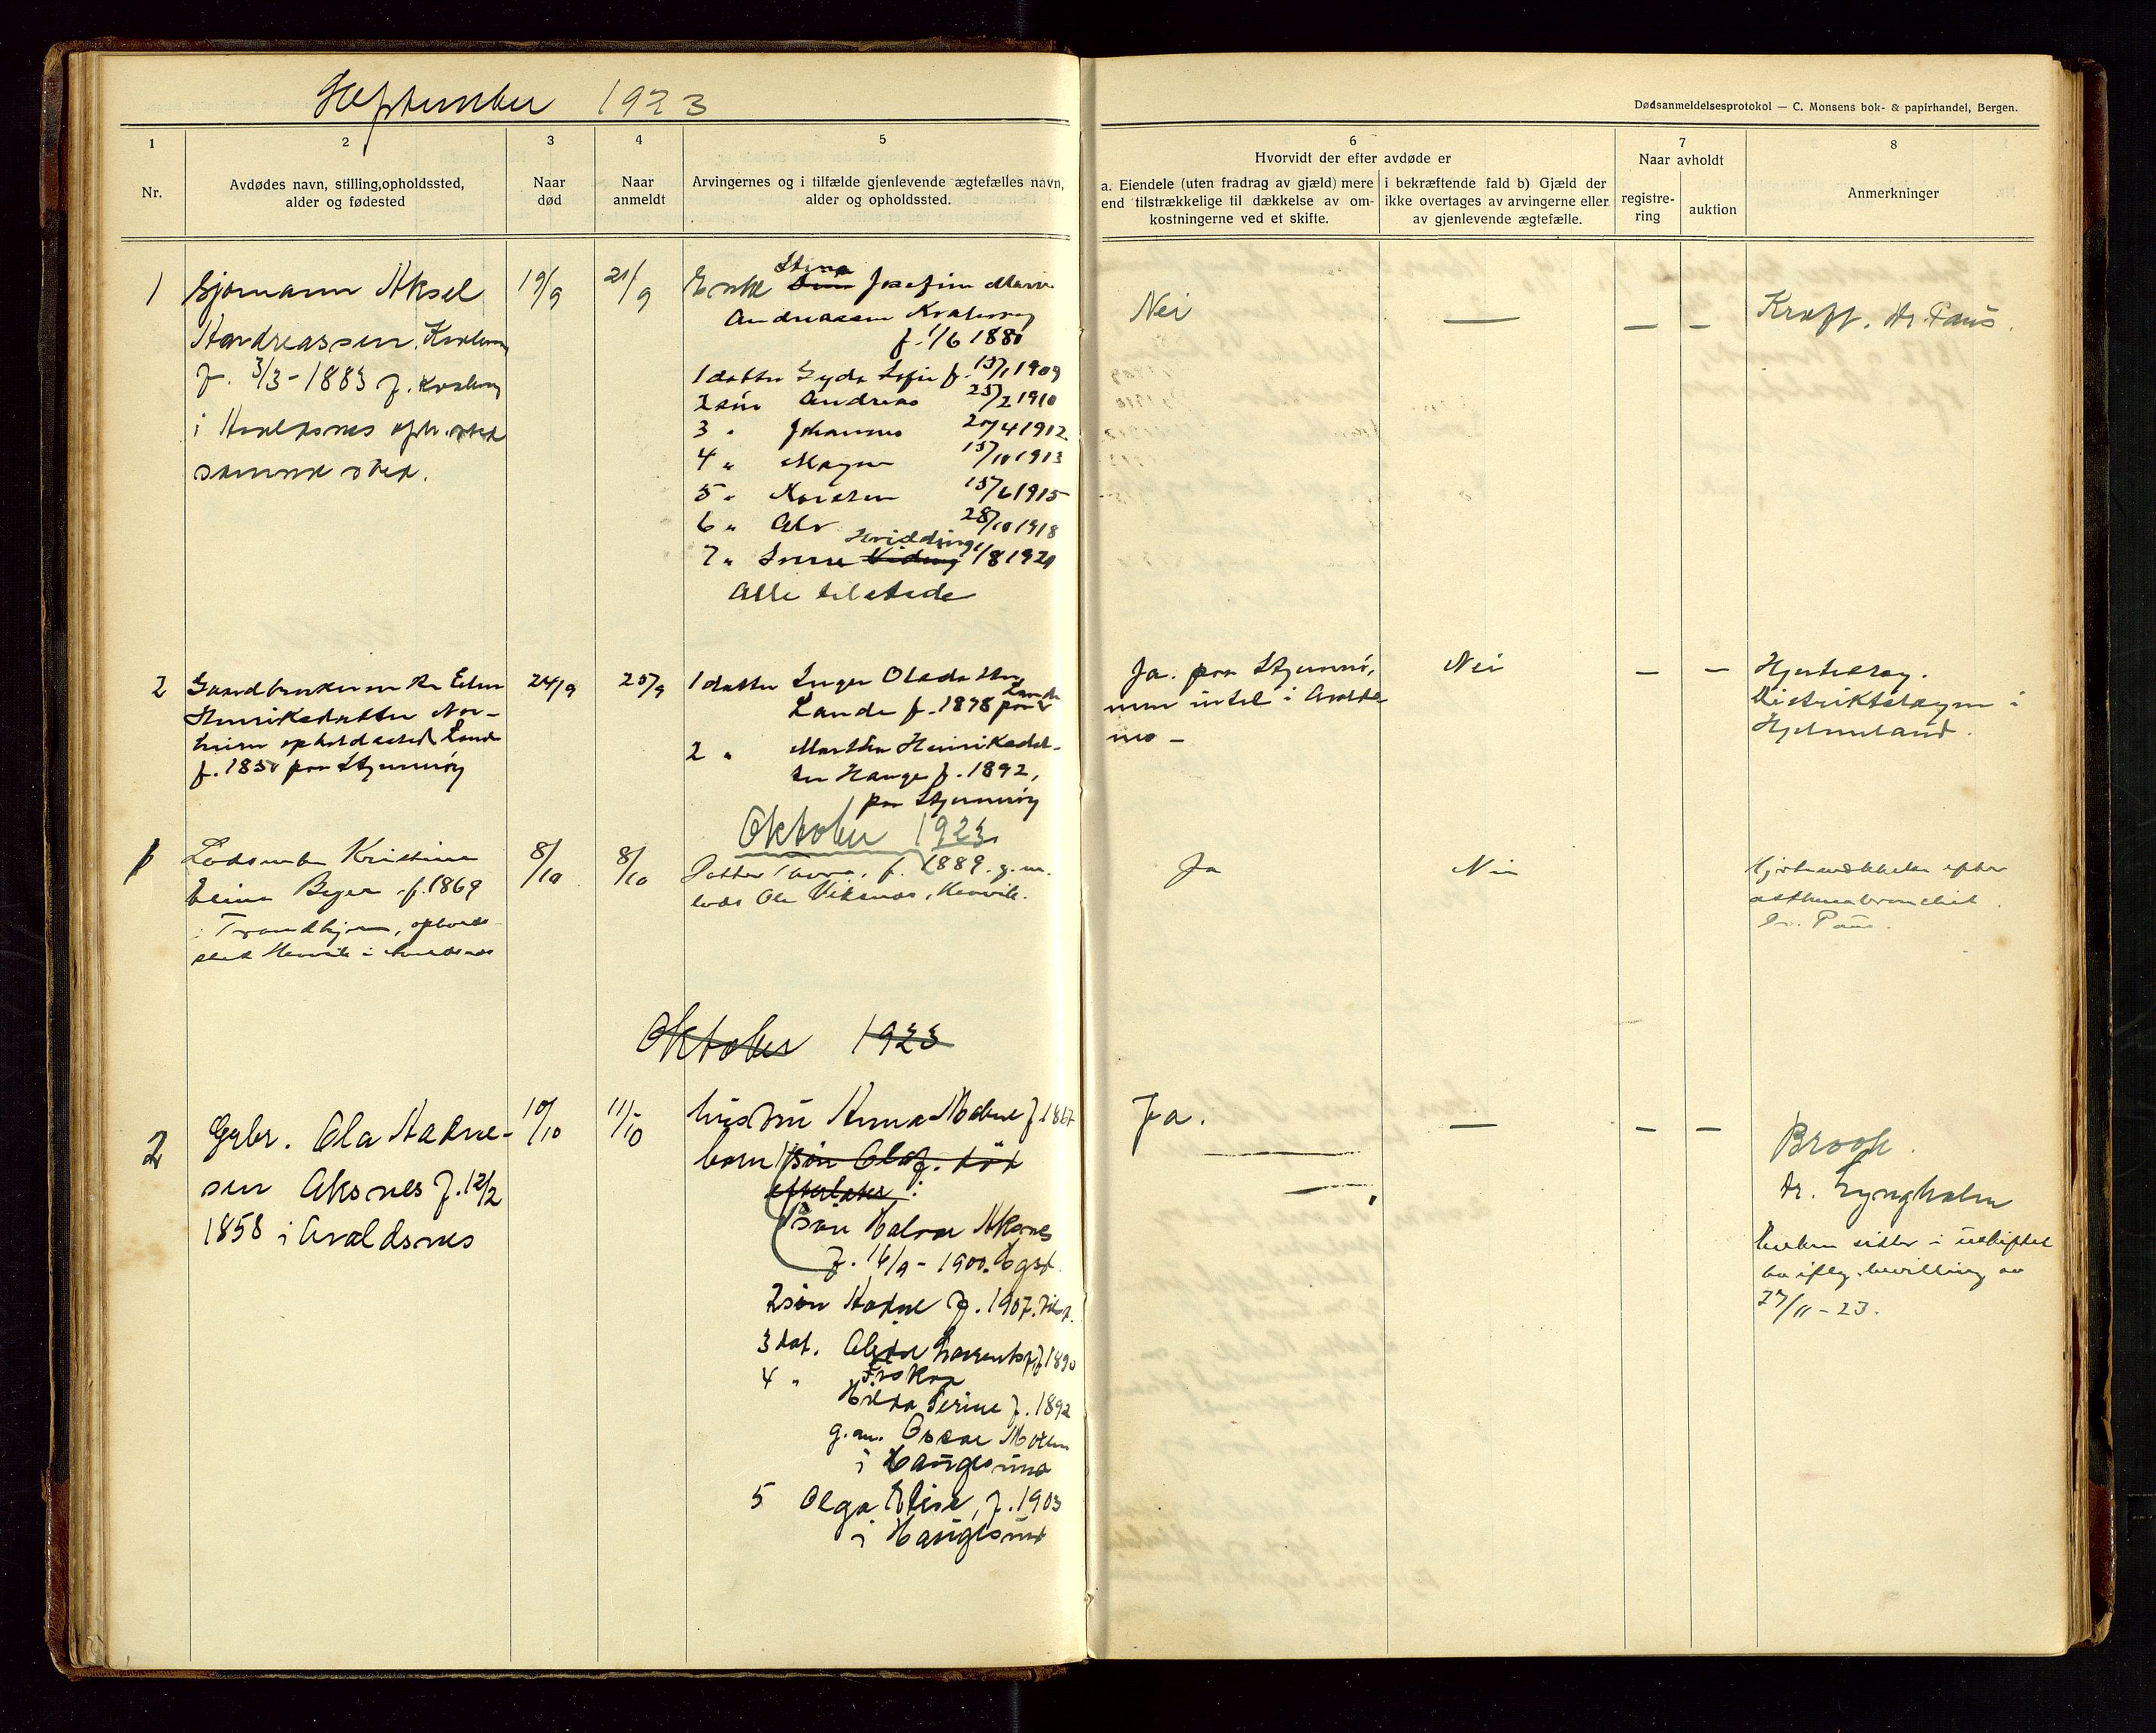 September 1923
Dødsanmeldelsesprotokol — C. Monsens bok- & papirhandel, Bergen.
1
2
3
4
5
6
7
8
Nr.
Avdødes navn, stilling, opholdssted,
alder og fødested
Naar
død
Naar
anmeldt
Arvingernes og i tilfælde gjenlevende ægtefælles navn,
alder og opholdssted.
Hvorvidt der efter avdøde er
a. Eiendele (uten fradrag av gjæld) mere
end tilstrækkelige til dækkelse av om-
kostningerne ved et skifte.
i bekræftende fald b) Gjæld der
ikke overtages av arvingerne eller
av gjenlevende ægtefælle.
Naar avholdt
registre-
ring
auktion
Anmerkninger
1
Sjømann Aksel
Andreassen,
f. 3/3-1883 f.
i Avaldsnes
samme sted.
19/9
21/9
Enke Stina Josefine Marie
Andreassen
f. 1/6 1880
1 datter Lyda Sofie f. 15/1 1909
2 søn Andreas 25/2 1910
3 " Johannes 20/4 1912
4 " Magne 15/10 1913
5 " Karsten 15/6 1915
6 " Alv 28/10 1918
7 " Sverre 1/8 1920
Alle tilstede
Nei
—
— —
Kræft. Dr. Paus.
2
Henriksdatter
opholdssted Lande
f. 1850 paa Stjernerøy
24/9
25/9
1 datter Inger Olsdatter
Lande f. 1878 paa Lande
2 " Martha Henriksdat-
ter Hauge f. 1892,
paa Stjernerøy
Ja. paa Stjernerø,
men intet i Avalds-
nes —
Nei
— —
Hjerteslag.
Distriktslægen i
Hjelmeland.
Oktober 1923
1
Kristine
Eline Beyer f. 1869
i Trondhjem, opholds-
sted i Avaldsnes
8/10
8/10
Datter Thora, f. 1889. g. m.
lods Ole Viksnes,
Ja
Nei
efter
Dr. Paus.
Oktober 1923
2
Grbr. Ola Aadne-
sen Aksnes f. 12/2
1858 i Avaldsnes
10/10
11/10
hustru Anna Malene f. 1867
børn 1 søn Olaf. død
efterlater:
1 søn Halvor Aksnes
f. 16/9-1900.
2 søn Aadne f. 1907.
3 dat. f. 1890
4 "
Hilda Serine f. 1892
g. m. Oscar
i Haugesund
5 Olga Elise, f. 1903
i Haugesund
Ja.
—
— —
Brook.
Dr. Lyngholm
Enken sitter i uskiftet
bo iflg. bevilling av
27/11-23.